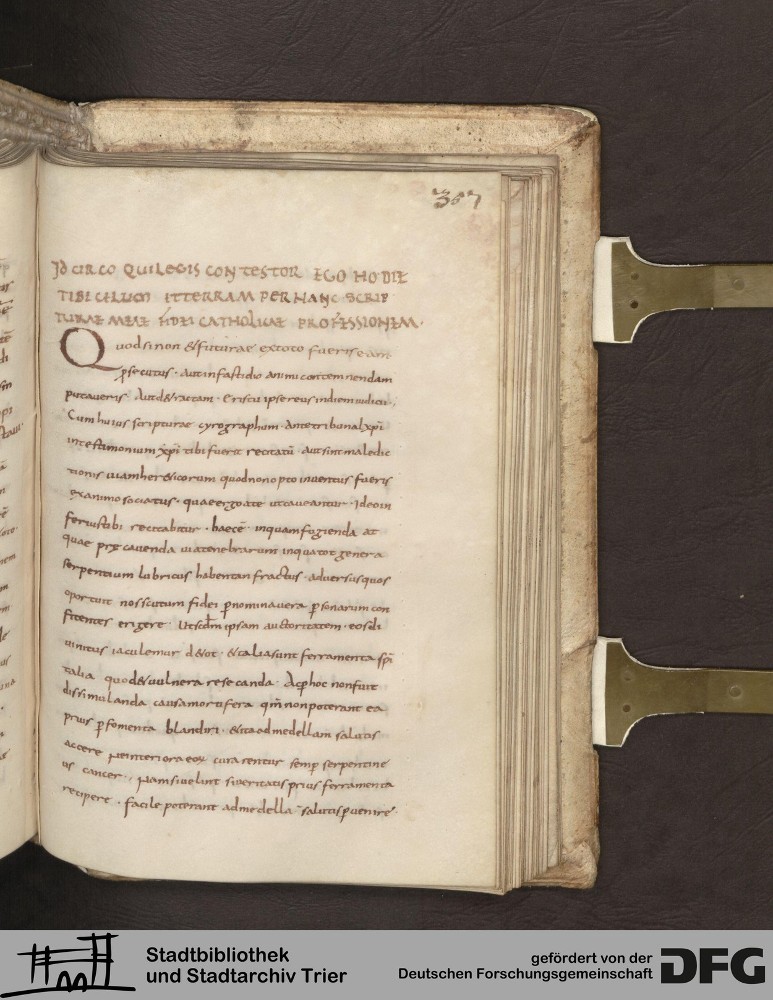 367
ID CIRCO QUI LEGIS CONTESTOR EGO HODIE
TIBI CAELUM ET TERRAM PER HANC SCRIP
TURAE MEAE FIDEI CATHOLICAE PROFESSIONEM.
Quod si non & futurae ex toto fueris eam
p̱secutus. aut in fastidio animi contemnendam
putaveris. Aut d&ractam.
Cum huius scripturae cyrographum. Ante tribunal xp̄i
in testimonium xp̄i tibi fuerit recitatū. aut sint maledic
tionis inventus fueris
ex animo sociatus. quae ergo ate ut caveantur. Ideo in
recitabitur. haec ē inquam fugienda at
quae p̱cavenda via tenebrarum in qua tot genera
serpentium lubricus habent anfractus. adversus quos
oportunt nos scutum fidei p̱ nomina vera p̱sonarum con
fitentes erigere. ipsam auctoritatem.
vinitus iaculemur & talia sunt ferramenta
talia quod & vulnera resecanda. Ac p̱ hoc non fuit
dissimulanda causa mortifera qm̄ non poterant ea
prius p̱ fomenta blandiri. & ita ad medellam salutis
curarentur semp̱ serpentine
us cancer. Nam si velint si veritatis prius ferramenta
recipere. facile poterant ad medella salutis p̱venire.
Stadtbibliothek
und Stadtarchiv Trier
gefördert von der
Deutschen Forschungsgemeinschaft
DFG